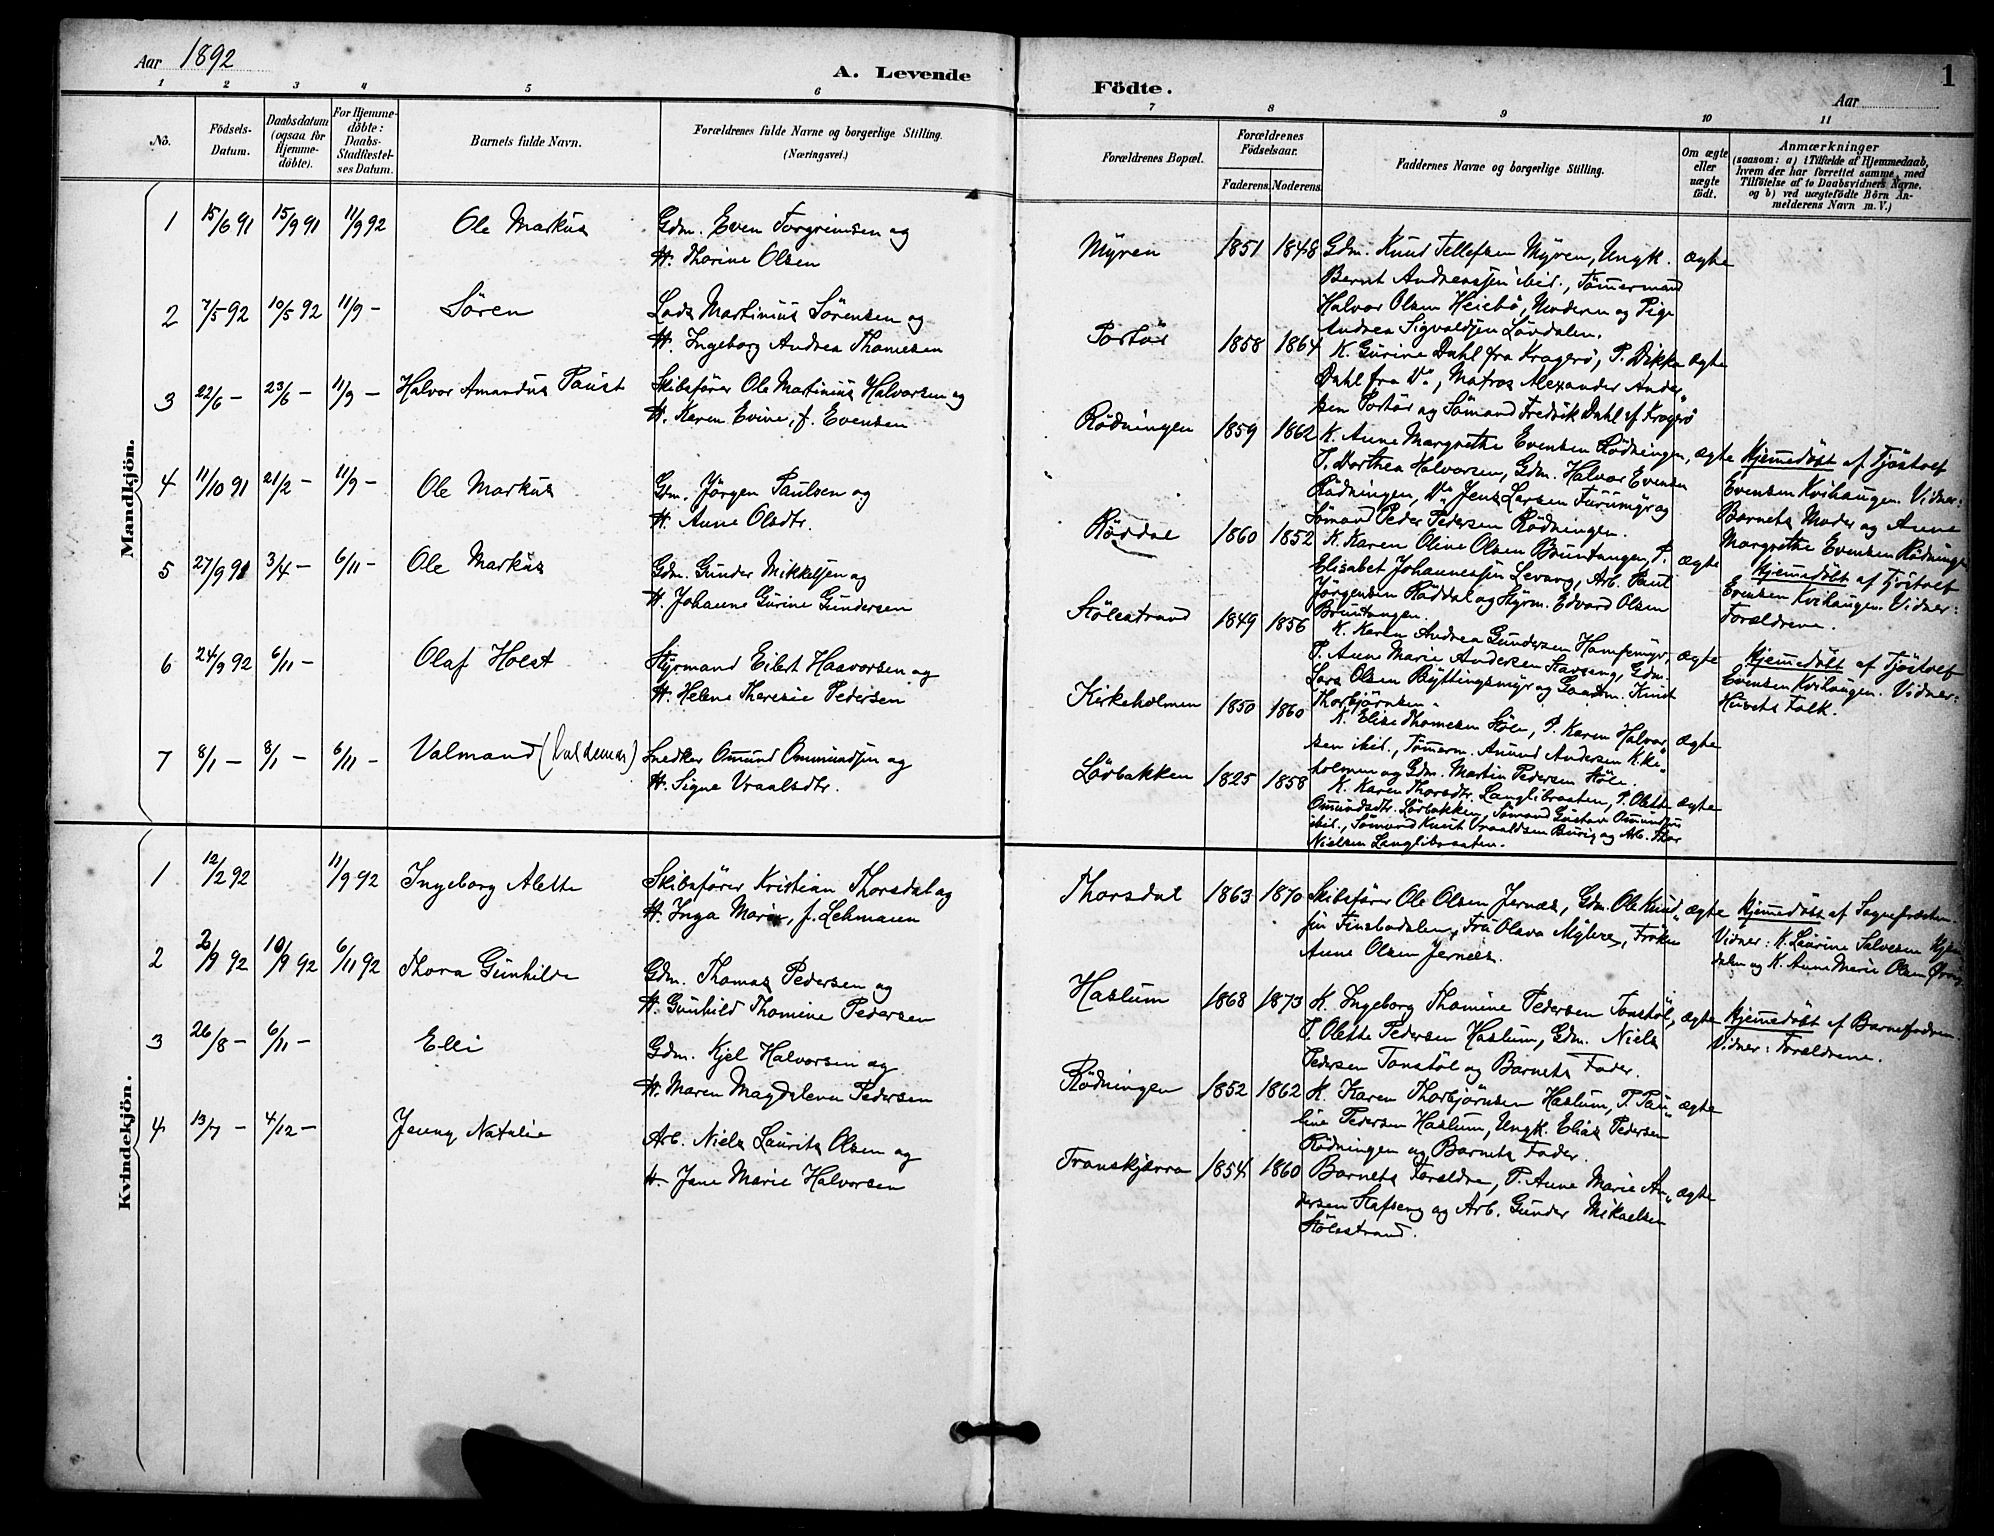 Aar 1892
A. Levende
1 2 3 4 5 6
No.
Födsels-
Datum.
Daabsdatum
(ogsaa for
Hjemme-
döbte).
For Hjemme-
döbte:
Daabs-
Stadfæstel-
ses Datum.
Barnets fulde Navn.
Forældrenes fulde Navne og borgerlige Stilling.
(Næringsvei.)
Mandkjön.
1 15/6 91 15/9 91 11/9 92 Ole Markus Gdm. Even Torgrimsen og
H. Thorine Olsen
2 7/5 92 10/5 92 11/9 – Sören Lods Martinius Sörensen og
H. Ingeborg Andrea Thomesen
3 22/6 – 23/6 – 11/9 – Halvor Amandus Paust Skibsförer Ole Martinius Halvorsen og
H. Karen Evine, f. Evensen
4 11/10 91 21/2 – 11/9 – Ole Markus Gdm. Jörgen Paulsen og
H. Anne Olsdtr.
5 27/9 91 3/4 – 6/11 – Ole Markus Gdm. Gunder Mikkelsen og
H. Johanne Gurine Gundersen
6 24/9 92 6/11 – Olaf Holst Styrmand Eilert Hasvorsen og
H. Helene Theresie Pedersen
7 8/1 – 8/1 – 6/11 – Valmand (Valdemar) Snedker Omund Ommundsen og
H. Signe Vraalsdtr.
Kvindekjön.
1 12/2 92 11/9 92 Ingeborg Alette Skibsförer Kristian Thorsdal og
H. Inga Marie, f. Lehmann
2 2/9 92 10/9 92 6/11 92 Thora Gunhilde Gdm. Thomas Pedersen og
H. Gunhild Thomine Pedersen
3 26/8 – 6/11 – Elli Gdm. Kjel Halvorsen og
H. Maren Magdalena Pedersen
4 13/7 – 4/12 – Jenny Natalie Arb. Niels Laurits Olsen og
H. Jane Marie Halvorsen
Födte.
Aar
1
7 8 9 10 11
Forældrenes Bopæl.
Forældrenes
Födselsaar.
Faderens. Moderens.
Faddernes Navne og borgerlige Stilling.
Om ægte
eller
uægte
födt.
Anmærkninger
(saasom: a) i Tilfælde af Hjemmedaab,
hvem der har forrettet samme, med
Tilföielse af to Daabsvidners Navne.
og b) ved uægtefödte Börn An-
melderens Navn m. V.)
Myren 1851 1848 Gdm. Knud Tellefsen Myren, Ungk. ægte
Bernt Andreassen ibid., Tömmermand
Halvor Olsen Heiebö, Moderen og Pige
Andrea Sigvaldsen Lövdalen.
Portör 1858 1864 K. Gurine Dahl fra Kragerö, P. Dikka ægte
Dahl fra Do, Matros Alexander Ander-
sen Portör og Sömand Fredrik Dahl af Kragerö
Rödningen 1859 1862 K. Anne Margrethe Evensen Rödningen, ægte Hjemmedöbt af Tjöstolf
P. Dorthea Halvorsen, Gdm. Halvor Evensen Evensen Kvihaugen. Vidner:
Rödningen, Do Jens Larsen Furumyr og Barnets Moder og Anne
Sömand Peder Pedersen Rödningen. Margrethe Evensen Rödningen
Röddal 1860 1852 K. Karen Oline Olsen Bruntangen, P. ægte Hjemmedöbt af Tjöstolf
Elisabet Johannessen Levang, Arb. Paul Evensen Kvihaugen. Vidner:
Jörgensen Röddal og Styrm. Edvard Olsen Forældrene.
Bruntangen.
Stölestrand 1849 1856 K. Karen Andrea Gundersen Hampemyr, ægte Hjemmedöbt af Tjöstolf
P. Anne Marie Andersen Stavseng, Gdm. Evensen Kvihaugen. Vidner:
Lars Olsen Byttingsmyr og Gaardm. Knut Husets Folk.
Thorbjörnsen.
Kirkeholmen 1850 1860 K. Elise Thomesen Stöle, P. Karen Halvor- ægte
sen ibid., Tömmerm. Anund Andersen K.ke-
holmen og Gdm. Martin Pedersen Stöle.
Lövbakken 1825 1858 K. Karen Thorsdtr. Langlibraaten, P. Olette ægte
Omundsdtr. Lövbakken, Sömand Gustav Omundsen
ibid., Sömand Knut Vraaldsen Buvig og Arb. Thor
Nielsen Langlibraaten.
Thorsdal 1863 1870 Skibsförer Ole Olsen Jernæs, Gdm. Ole Knud- ægte Hjemmedöbt af Sognepræsten.
sen Finsbudalen, Fru Olava Myhre, Fröken Vidner: K. Laurine Salvesen
Anne Olsen Jernæs. dalen og K. Anne Marie Olsen
Haslum 1868 1873 K. Ingeborg Thomine Pedersen Tonstöl, ægte Hjemmedöbt af Barnefaderen.
P. Olette Pedersen Haslum, Gdm. Niels Vidner: Forældrene.
Pedersen Tonstöl og Barnets Fader.
Rödningen 1852 1862 K. Karen Thorbjörnsen Haslum, P. Pau- ægte
line Pedersen Haslum, Ungk. Elias Pedersen
Rödningen og Barnets Fader.
Transkjærra 1854 1860 Barnets Forældre, P. Anne Marie An- ægte
dersen Stafseng og Arb. Gunder Mikaelsen
Stölestrand.